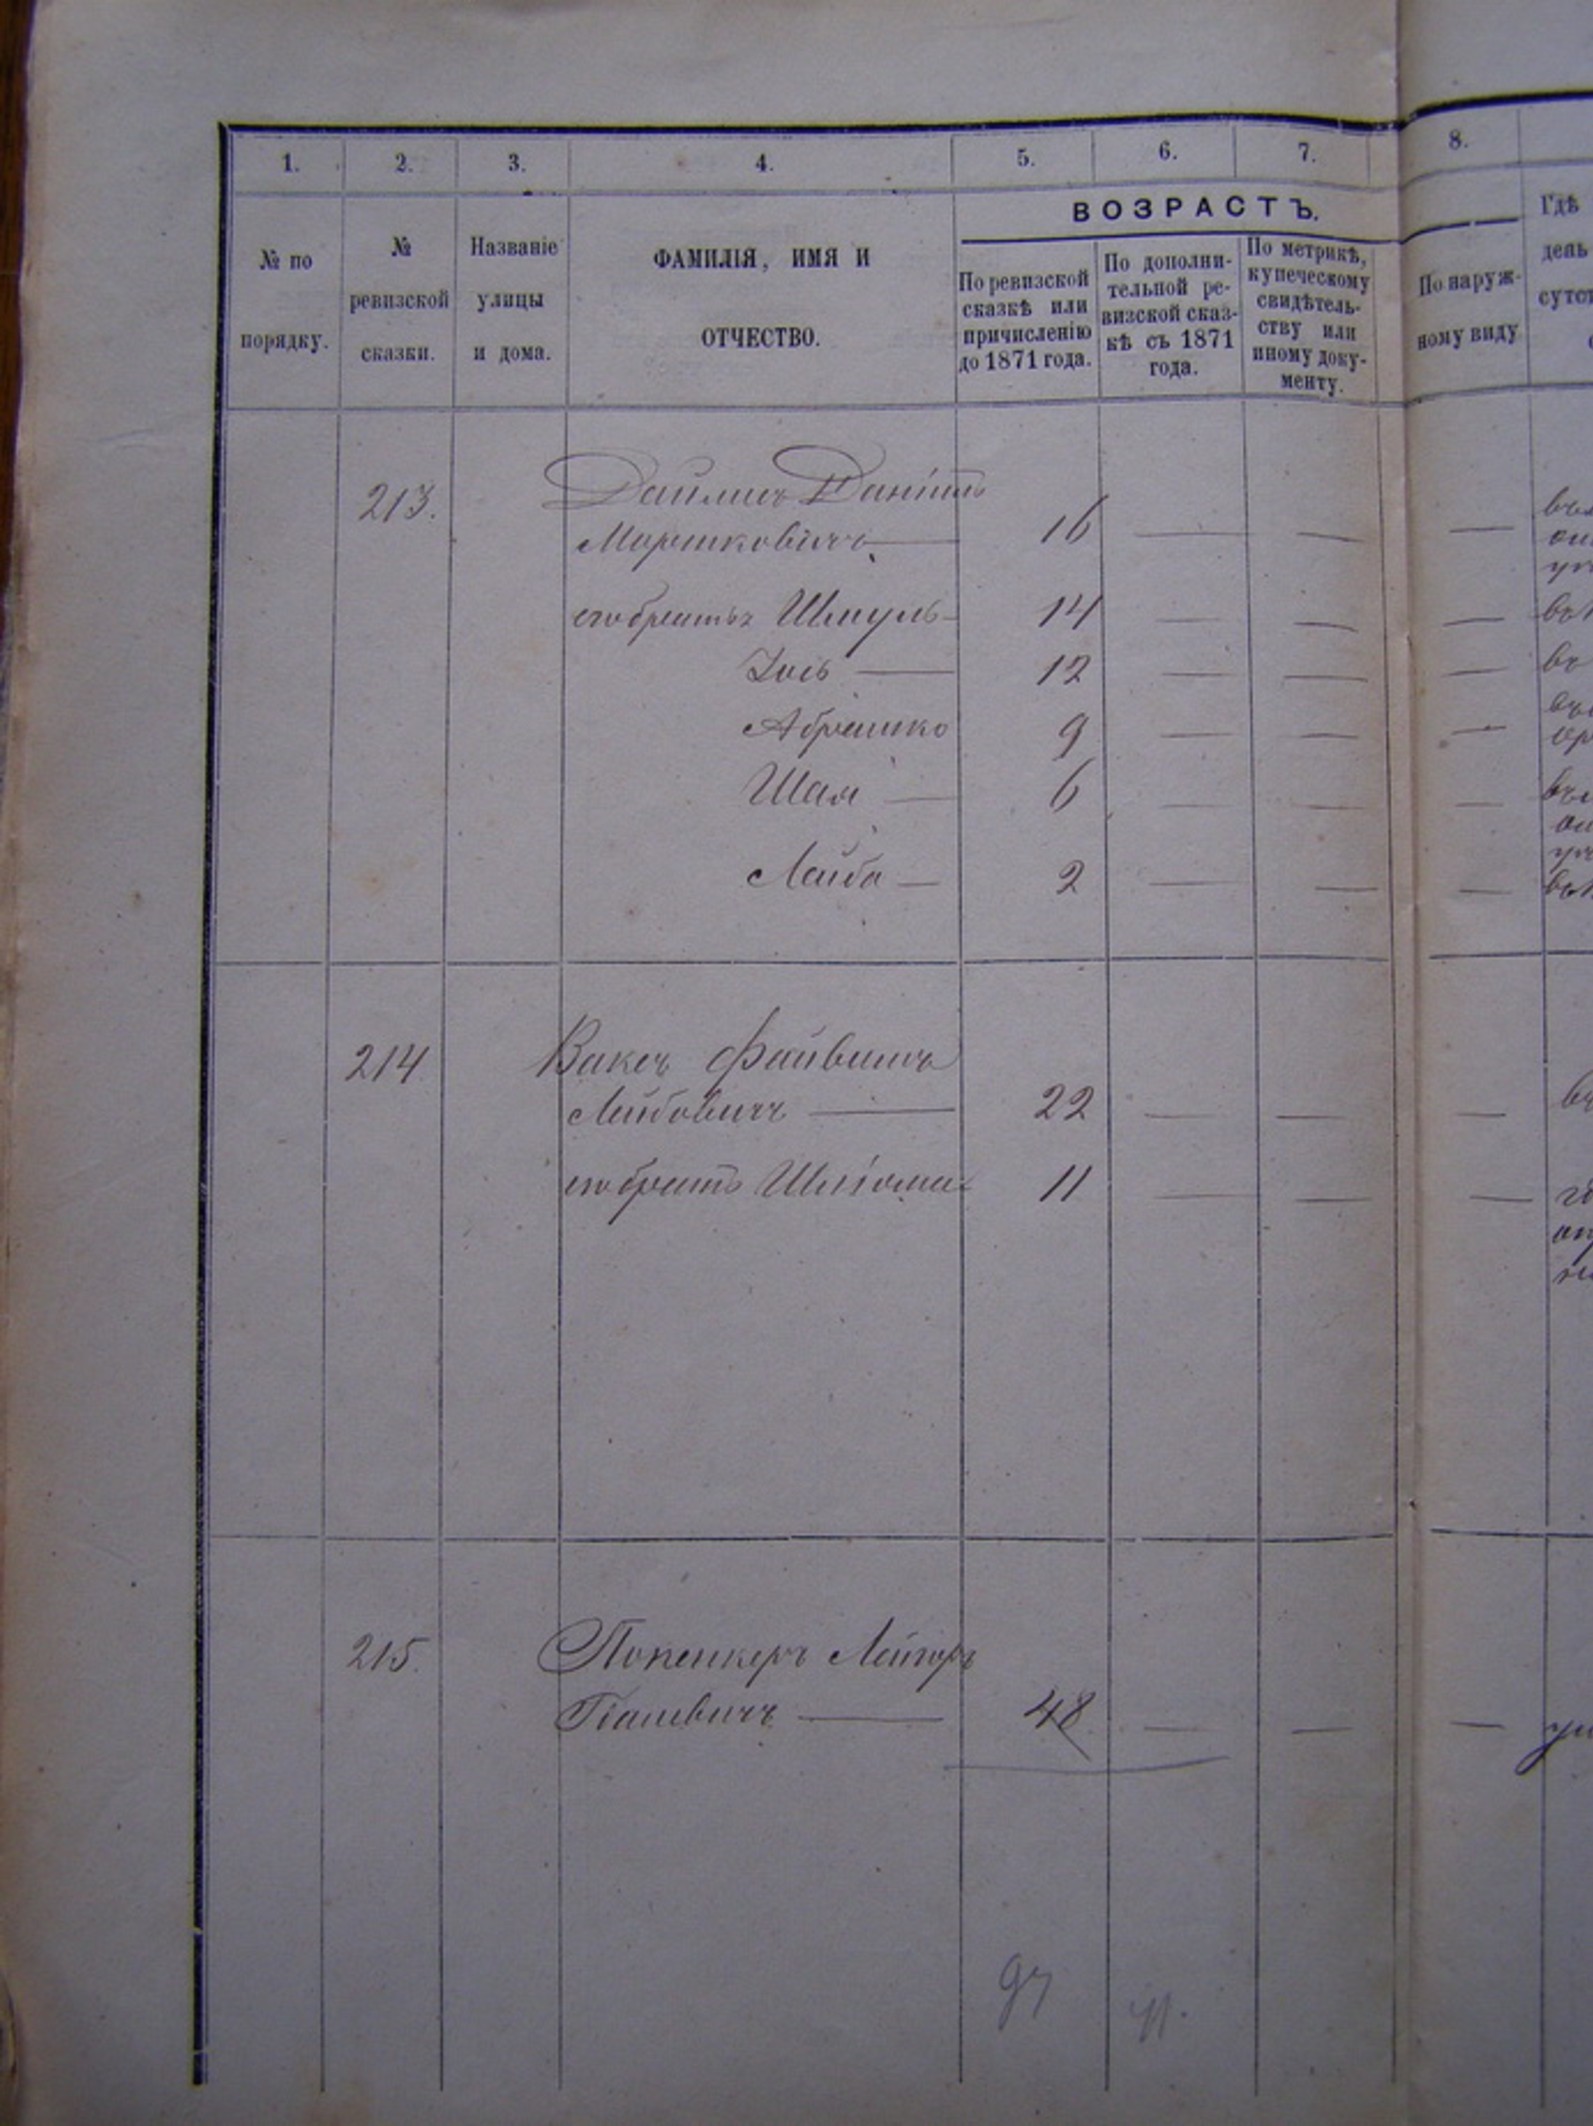 1. 2. 3. 4. 5. 6. 7. 8.
ВОЗРАСТЪ.
№ по порядку.
№ ревизской сказки.
Названіе улицы и дома.
ФАМИЛІЯ, ИМЯ И ОТЧЕСТВО.
По ревизской сказкѣ или причисленію до 1871 года.
По дополни-тельной ре-визской сказ-кѣ съ 1871 года.
По метрикѣ, купеческому свидѣтель-ству или иному доку-менту.
По наруж-ному виду
Гдѣ
день
213. Даніель
Мортковичъ — 16 — — —
его братья Шмуль 14 — — —
Іось — 12 — — —
Абрашко 9 — — —
Шая — 6 — — —
Лейба — 2 — — —
214 Ваксъ Файвишъ
Лейбовичъ — 22 — — —
его братъ Шліома 11 — — —
215. Лейзоръ
— 48 — — —